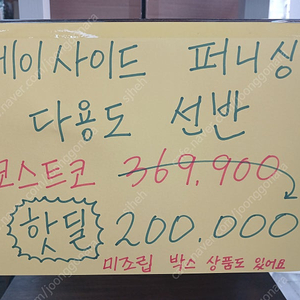 베이사이드 퍼니싱
다용도 선반
코스트코 369,900
핫딜 200,000
미조립 박스 상품도 있어요